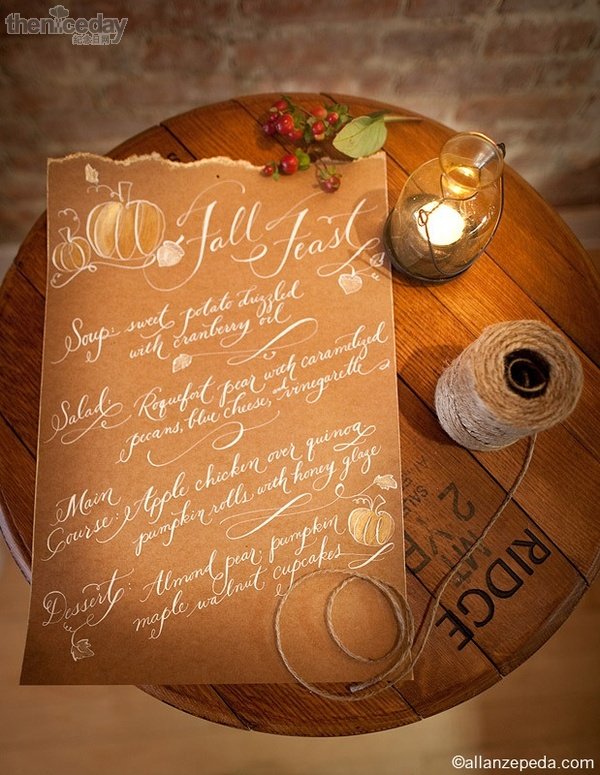 theniceday
Fall Feast
Soup: sweet potato drizzled
with cranberry oil
Salad: Roquefort pear with caramelized
pecans, blue cheese, and vinegarette
Main
Course: Apple chicken over quinoa
pumpkin rolls with honey glaze
Dessert: Almond pear, pumpkin
maple walnut, cupcakes
RIDGE
©allanzepeda.com